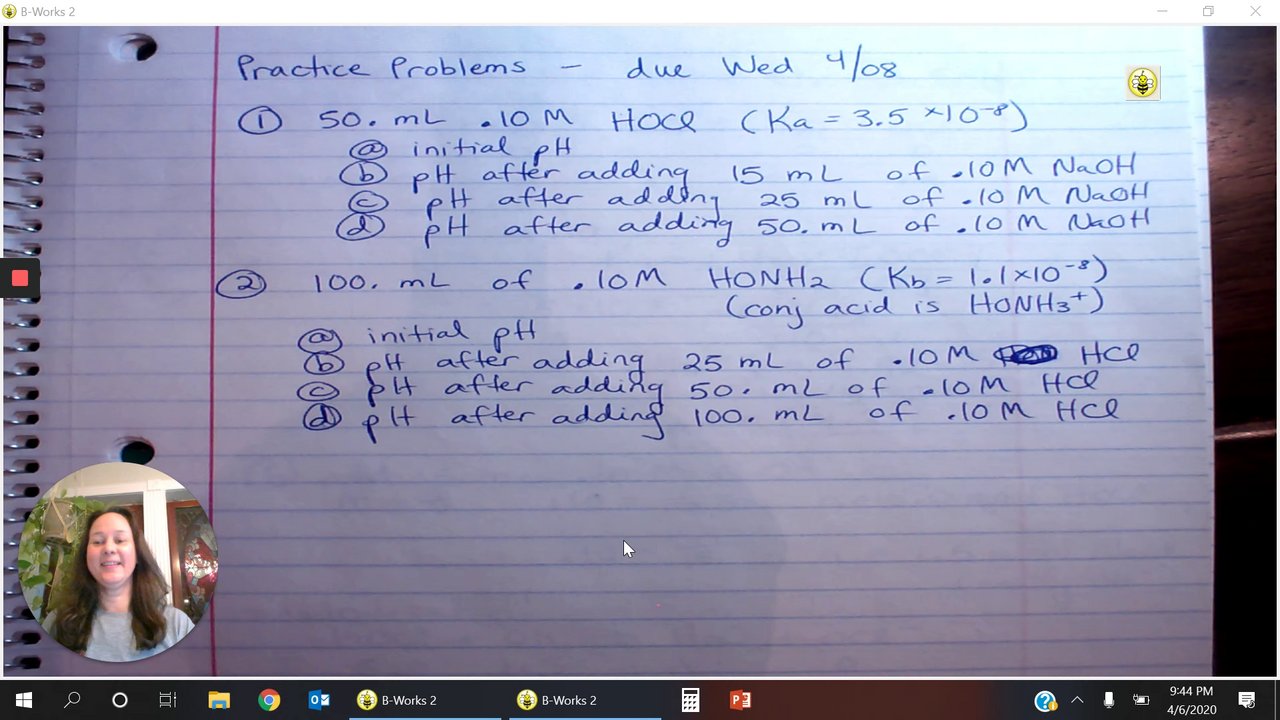 B-Works 2
Practice Problems - due Wed 4/08
① 50. mL .10 M HOCl (Ka = 3.5 ×10⁻⁸)
ⓐ initial pH
ⓑ pH after adding 15 mL of .10 M NaOH
ⓒ pH after adding 25 mL of .10 M NaOH
ⓓ pH after adding 50. mL of .10 M NaOH
② 100. mL of .10 M HONH₂ (Kb = 1.1×10⁻⁸)
(conj acid is HONH₃⁺)
ⓐ initial pH
ⓑ pH after adding 25 mL of .10 M HCl
ⓒ pH after adding 50. mL of .10 M HCl
ⓓ pH after adding 100. mL of .10 M HCl
B-Works 2 B-Works 2
9:44 PM
4/6/2020